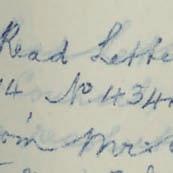 Read Lette
14 No 434
om Mrs